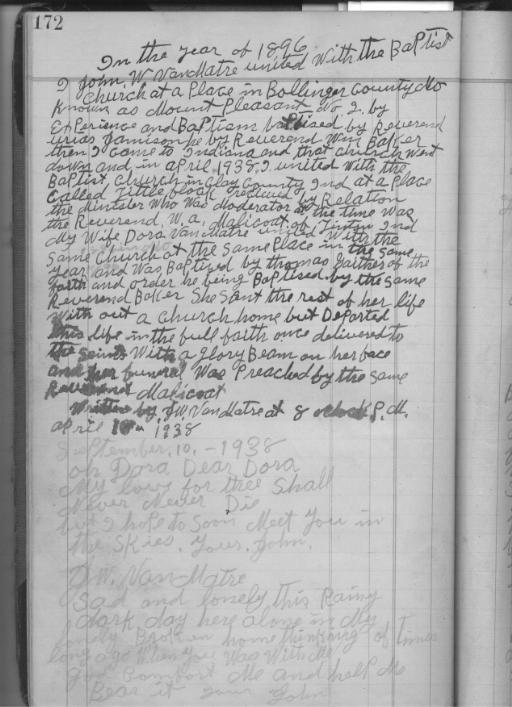 172
In the year of 1896
I John. W. VanMatre united With the BaPtist
Church at a Place in Bollinger County Mo
Known as Mount Pleasant No 2. by
ExPerience and BaPtism baPtised by Reverend
Urias Jamison he by Reverend Wan Baker
then I came to Indiana and that church Went
down and in aPril, 1938, I united With the
BaPtist Church in Clay County Ind at a Place
Called Little Flock received by Relation
the Minister Who Was Moderator at the time Was
the Reverend. W. a. Malicoat. of Linton Ind
My Wife Dora VanMatre united With the
Same Church at the Same Place in the Same
year and Was BaPtised by thomas Gaither of the
faith and order he being BaPtised by the Same
Reverend Baker She Sant the rest of her life
With out a church home but DeParted
this life in the full faith once delivered to
the Saints With a glory Beam on her face
and her funeral Was Preached by the Same
Reverend Malicoat
Written by J.W. VanMatre at 8 oclock P. M.
aPril 1938
September. 10. - 1938
oh Dora Dear Dora
My love for thee Shall
Never Never Die
but I hoPe to Soon Meet You in
the SKies. Your. John.
J.W. VanMatre
Sad and lonely this Rainy
dark day here alone in My
lonely Broken home thinking of times
long ago When you Was With Me
God Comfort Me and help Me
Bear it your John